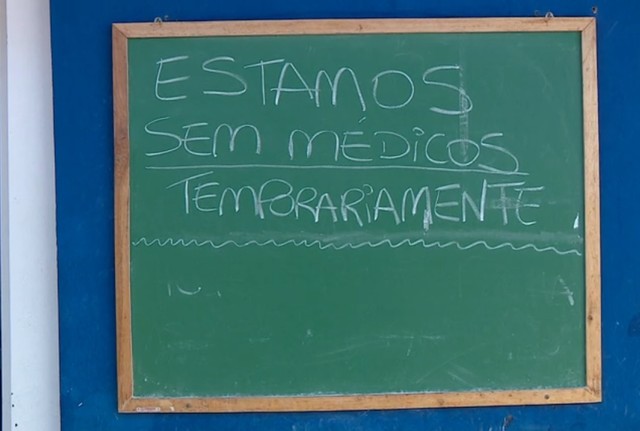 ESTAMOS
SEM MÉDICOS
TEMPORARIAMENTE